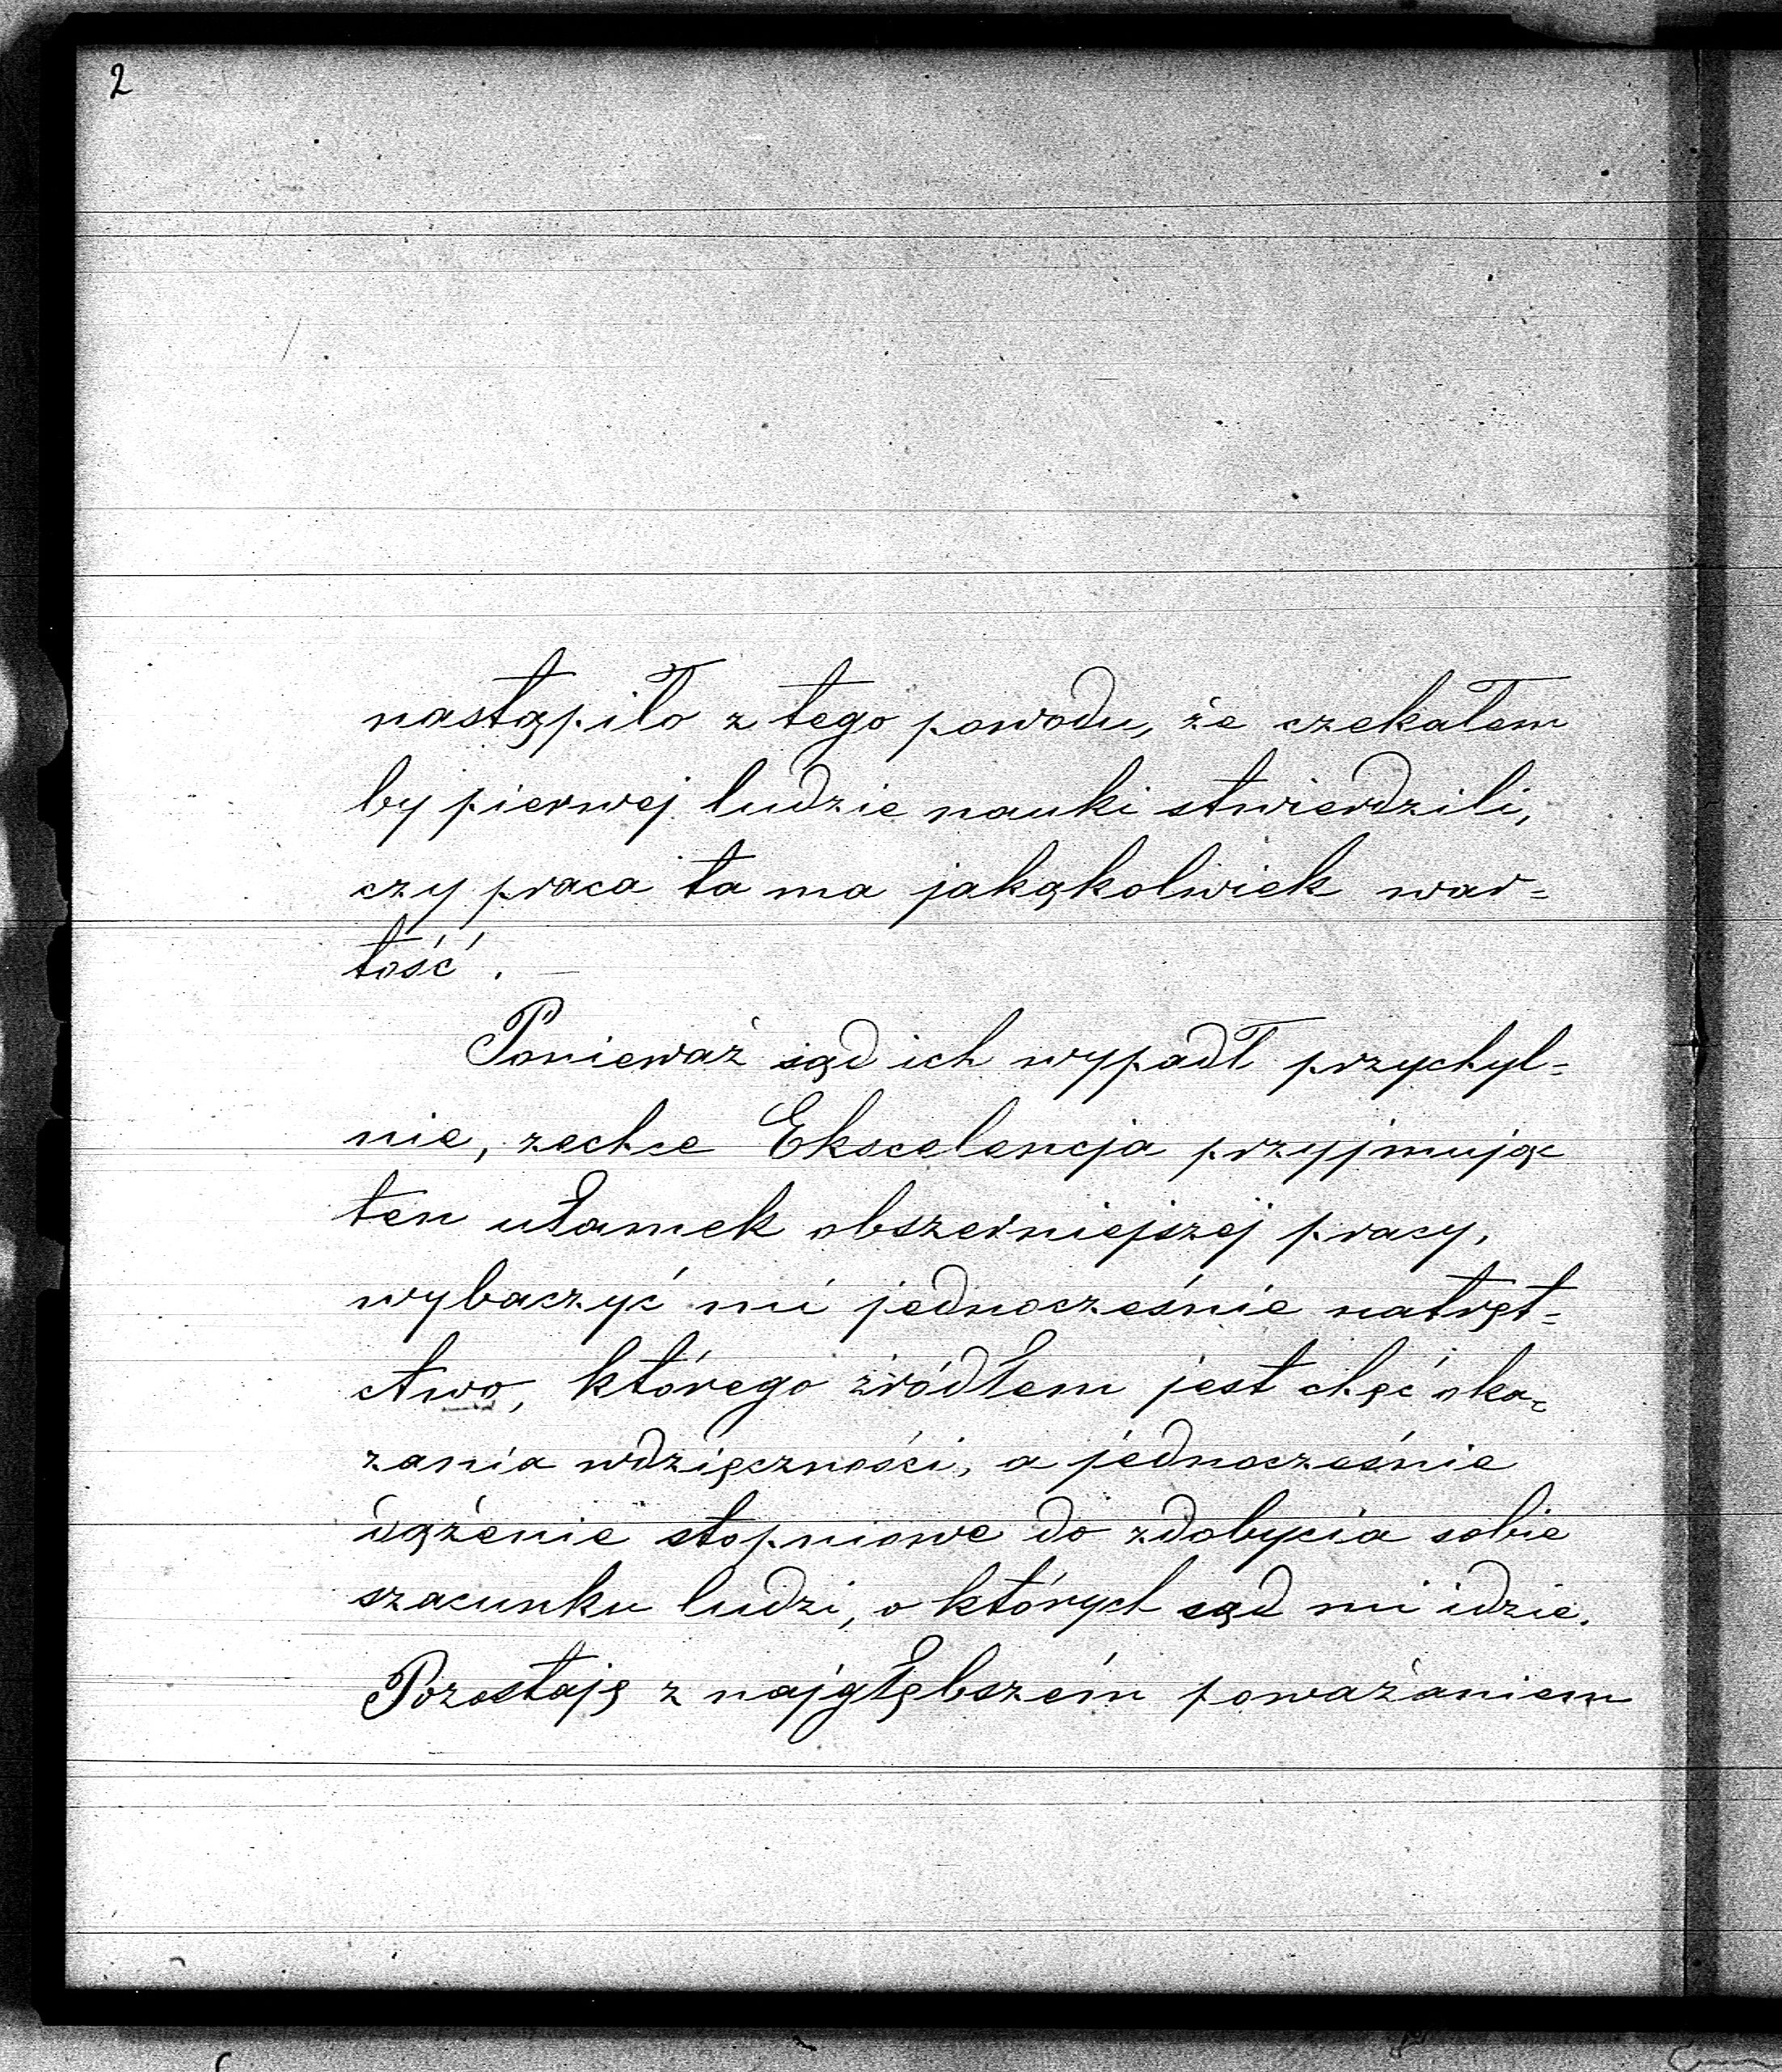 2
nastąpiło z tego powodu, że czekałem
by pierwej ludzie nauki stwierdzili,
czy praca ta ma jakąkolwiek war=
tość.
Ponieważ sąd ich wypadł przychyl=
nie, zechce Ekscelencja przyjmując
ten ułamek obszerniejszej pracy,
wybaczyć mi jednocześnie natręt=
ctwo, którego źródłem jest chęć oka=
zania wdzięczności, a jednocześnie
dążenie stopniowe do zdobycia sobie
szacunku ludzi, o których sąd mi idzie.
Pozostaję z najgłębszém poważaniem